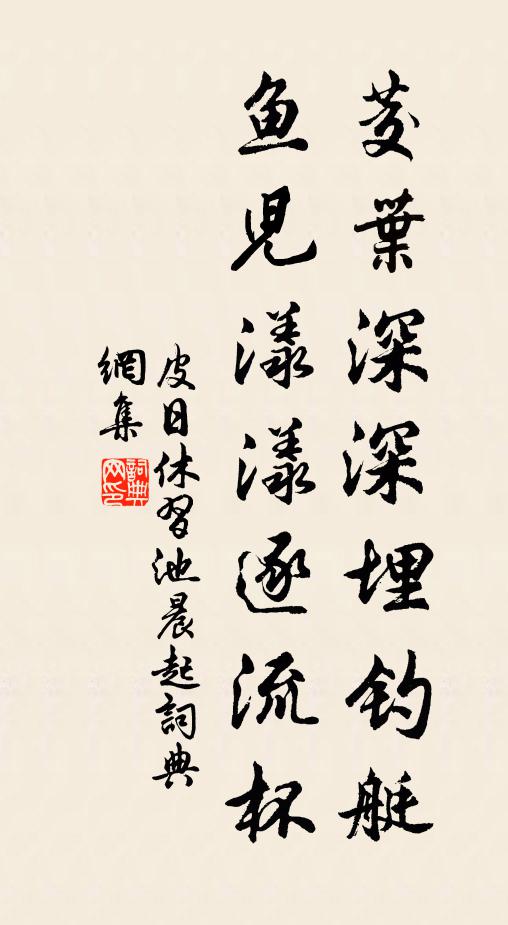 茭葉深深埋钓艇
鱼児漾漾逐流杯
皮日休習池晨起詞典
網集
詞典
网印